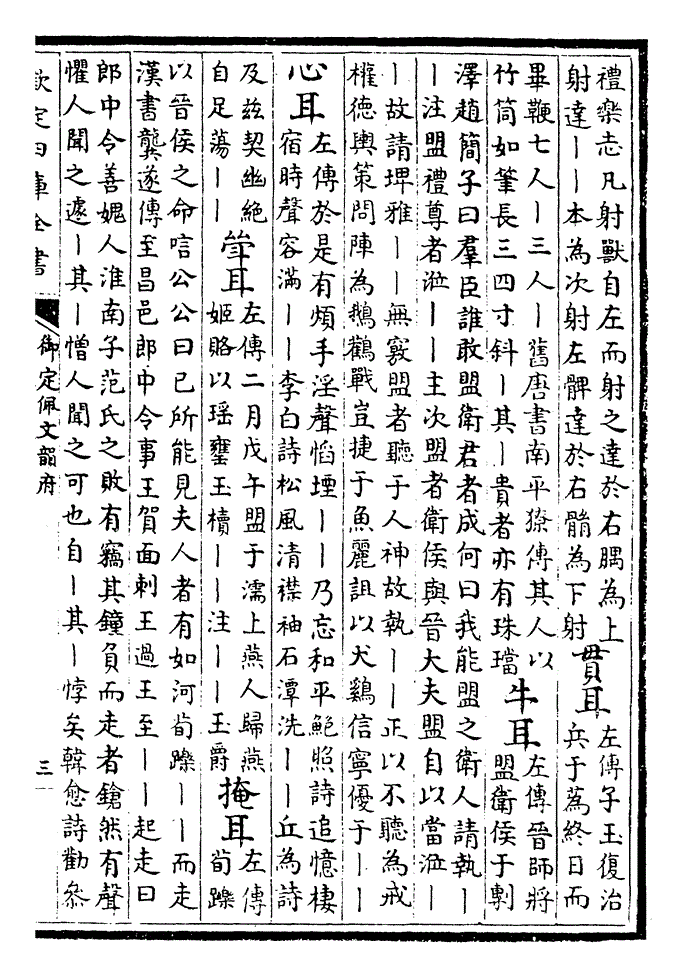 禮樂志凡射獸自左而射之達於右腢為上
射達丨丨本為次射左髀達於右䯚為下射
貫耳
左傳子玉復治
兵于蒍終日而
畢鞭七人丨三人丨舊唐書南平獠傳其人以
竹筒如筆長三四寸斜丨其丨貴者亦有珠璫
牛耳
左傳晉師將
盟衛侯于鄟
澤趙簡子曰羣臣誰敢盟衛君者成何曰我能盟之衛人請執丨
丨注盟禮尊者涖丨丨主次盟者衛侯與晉大夫盟自以當涖丨
丨故請埤雅丨丨無竅盟者聽于人神故執丨丨正以不聽為戒
權德輿策問陣為鵝鸛戰豈捷于魚麗詛以犬鷄信寧優于丨丨
心耳
左傳於是有煩手淫聲慆堙丨丨乃忘和平鮑照詩追憶棲
宿時聲容滿丨丨李白詩松風清襟袖石潭洗丨丨丘為詩
及茲契幽絕
自足蕩丨丨
斝耳
左傳二月戊午盟于濡上燕人歸燕
姬賂以瑶罋玉櫝丨丨注丨丨玉爵
掩耳
左傳
荀躒
以晉侯之命唁公公曰已所能見夫人者有如河荀躒丨丨而走
漢書龔遂傳至昌邑郎中令事王賀面刺王過王至丨丨起走曰
郎中令善媿人淮南子范氏之敗有竊其鐘負而走者鎗然有聲
懼人聞之遽丨其丨憎人聞之可也自丨其丨悖矣韓愈詩勸參
欽定四庫全書
御定佩文韻府
三